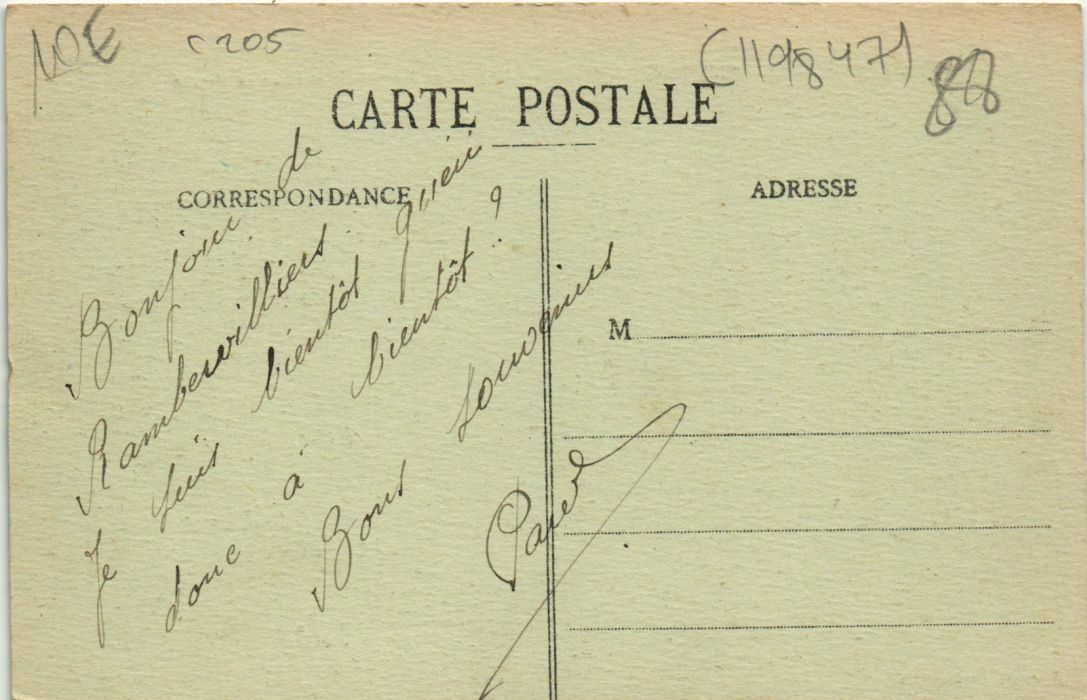 10€ c205 (119847) 88
CARTE POSTALE
CORRESPONDANCE
ADRESSE
M
Bonjour de
Rambervilliers
Je suis bientôt guéri
donc à bientôt ?
Bons souvenirs
Paul